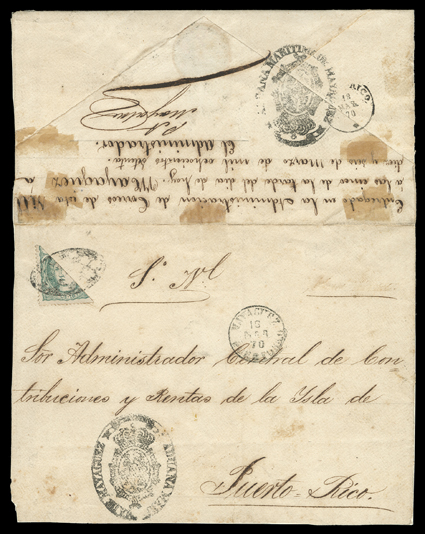 ADUANA MARITIMA DE MAYAGUEZ
RICO
18
MAR
70
P. A.
El administrador.
diez y seis de Marzo de mil ochocientos setenta.
a las once de la tarde de hoy. Mayaguez a
Entregado en la administracion de Correos de esta Villa
S. N.
MAYAGUEZ
16
MAR
70
Sor Administrador Central de Con-
tribuciones y Rentas de la Ysla de
Puerto=Rico.
ADUANA MARITIMA DE MAYAGUEZ